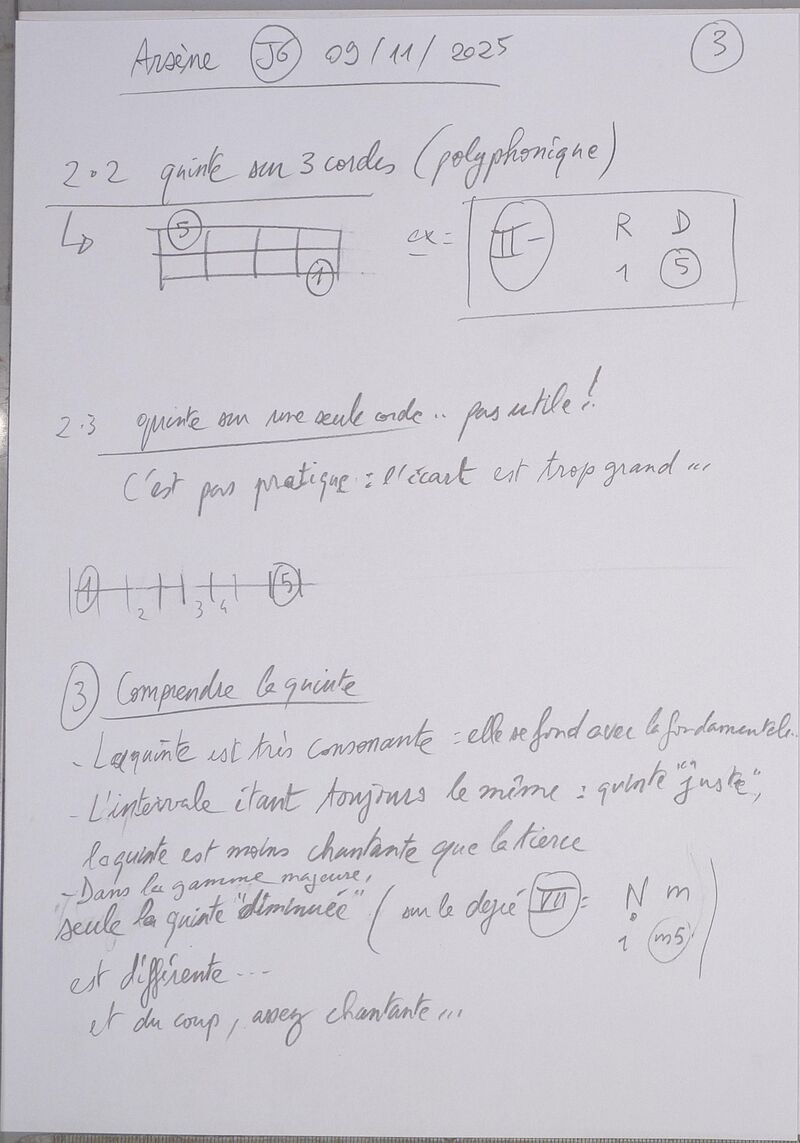 Arsène J6 09/11/2025 3
2.2 quinte sur 3 cordes (polyphonique)
5 ex = II- R D
1 1 5
2.3 quinte sur une seule corde .. pas utile !
C'est pas pratique : l'écart est trop grand ...
1 2 3 4 5
3 Comprendre la quinte
- La quinte est très consonante : elle se fond avec la fondamentale..
- L'intervale étant toujours le même : quinte "juste",
la quinte est moins chantante que la tierce
- Dans la gamme majeure,
seule la quinte "diminuée" (sur le degré VII = N m
1 m5)
est différente ...
et du coup, assez chantante ...